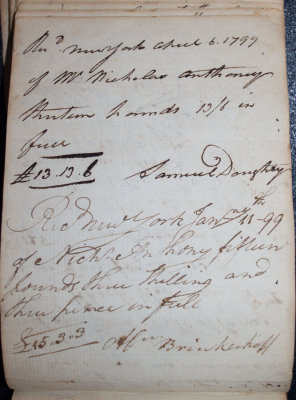 Recd. New York April 6. 1799
of Mr Nicholas Anthony
thirteen pounds 13/6 in
full
£13.13.6 Samuel Doughty
Recd New York Jany 11th - 99
of Nichs Anthony fifteen
pounds three shilling and
three pence in full
£15.3.3 Brinkerhoff